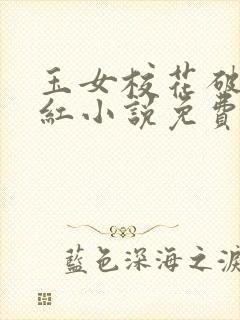 玉女校花破
紅小說免費
藍色深海之淚